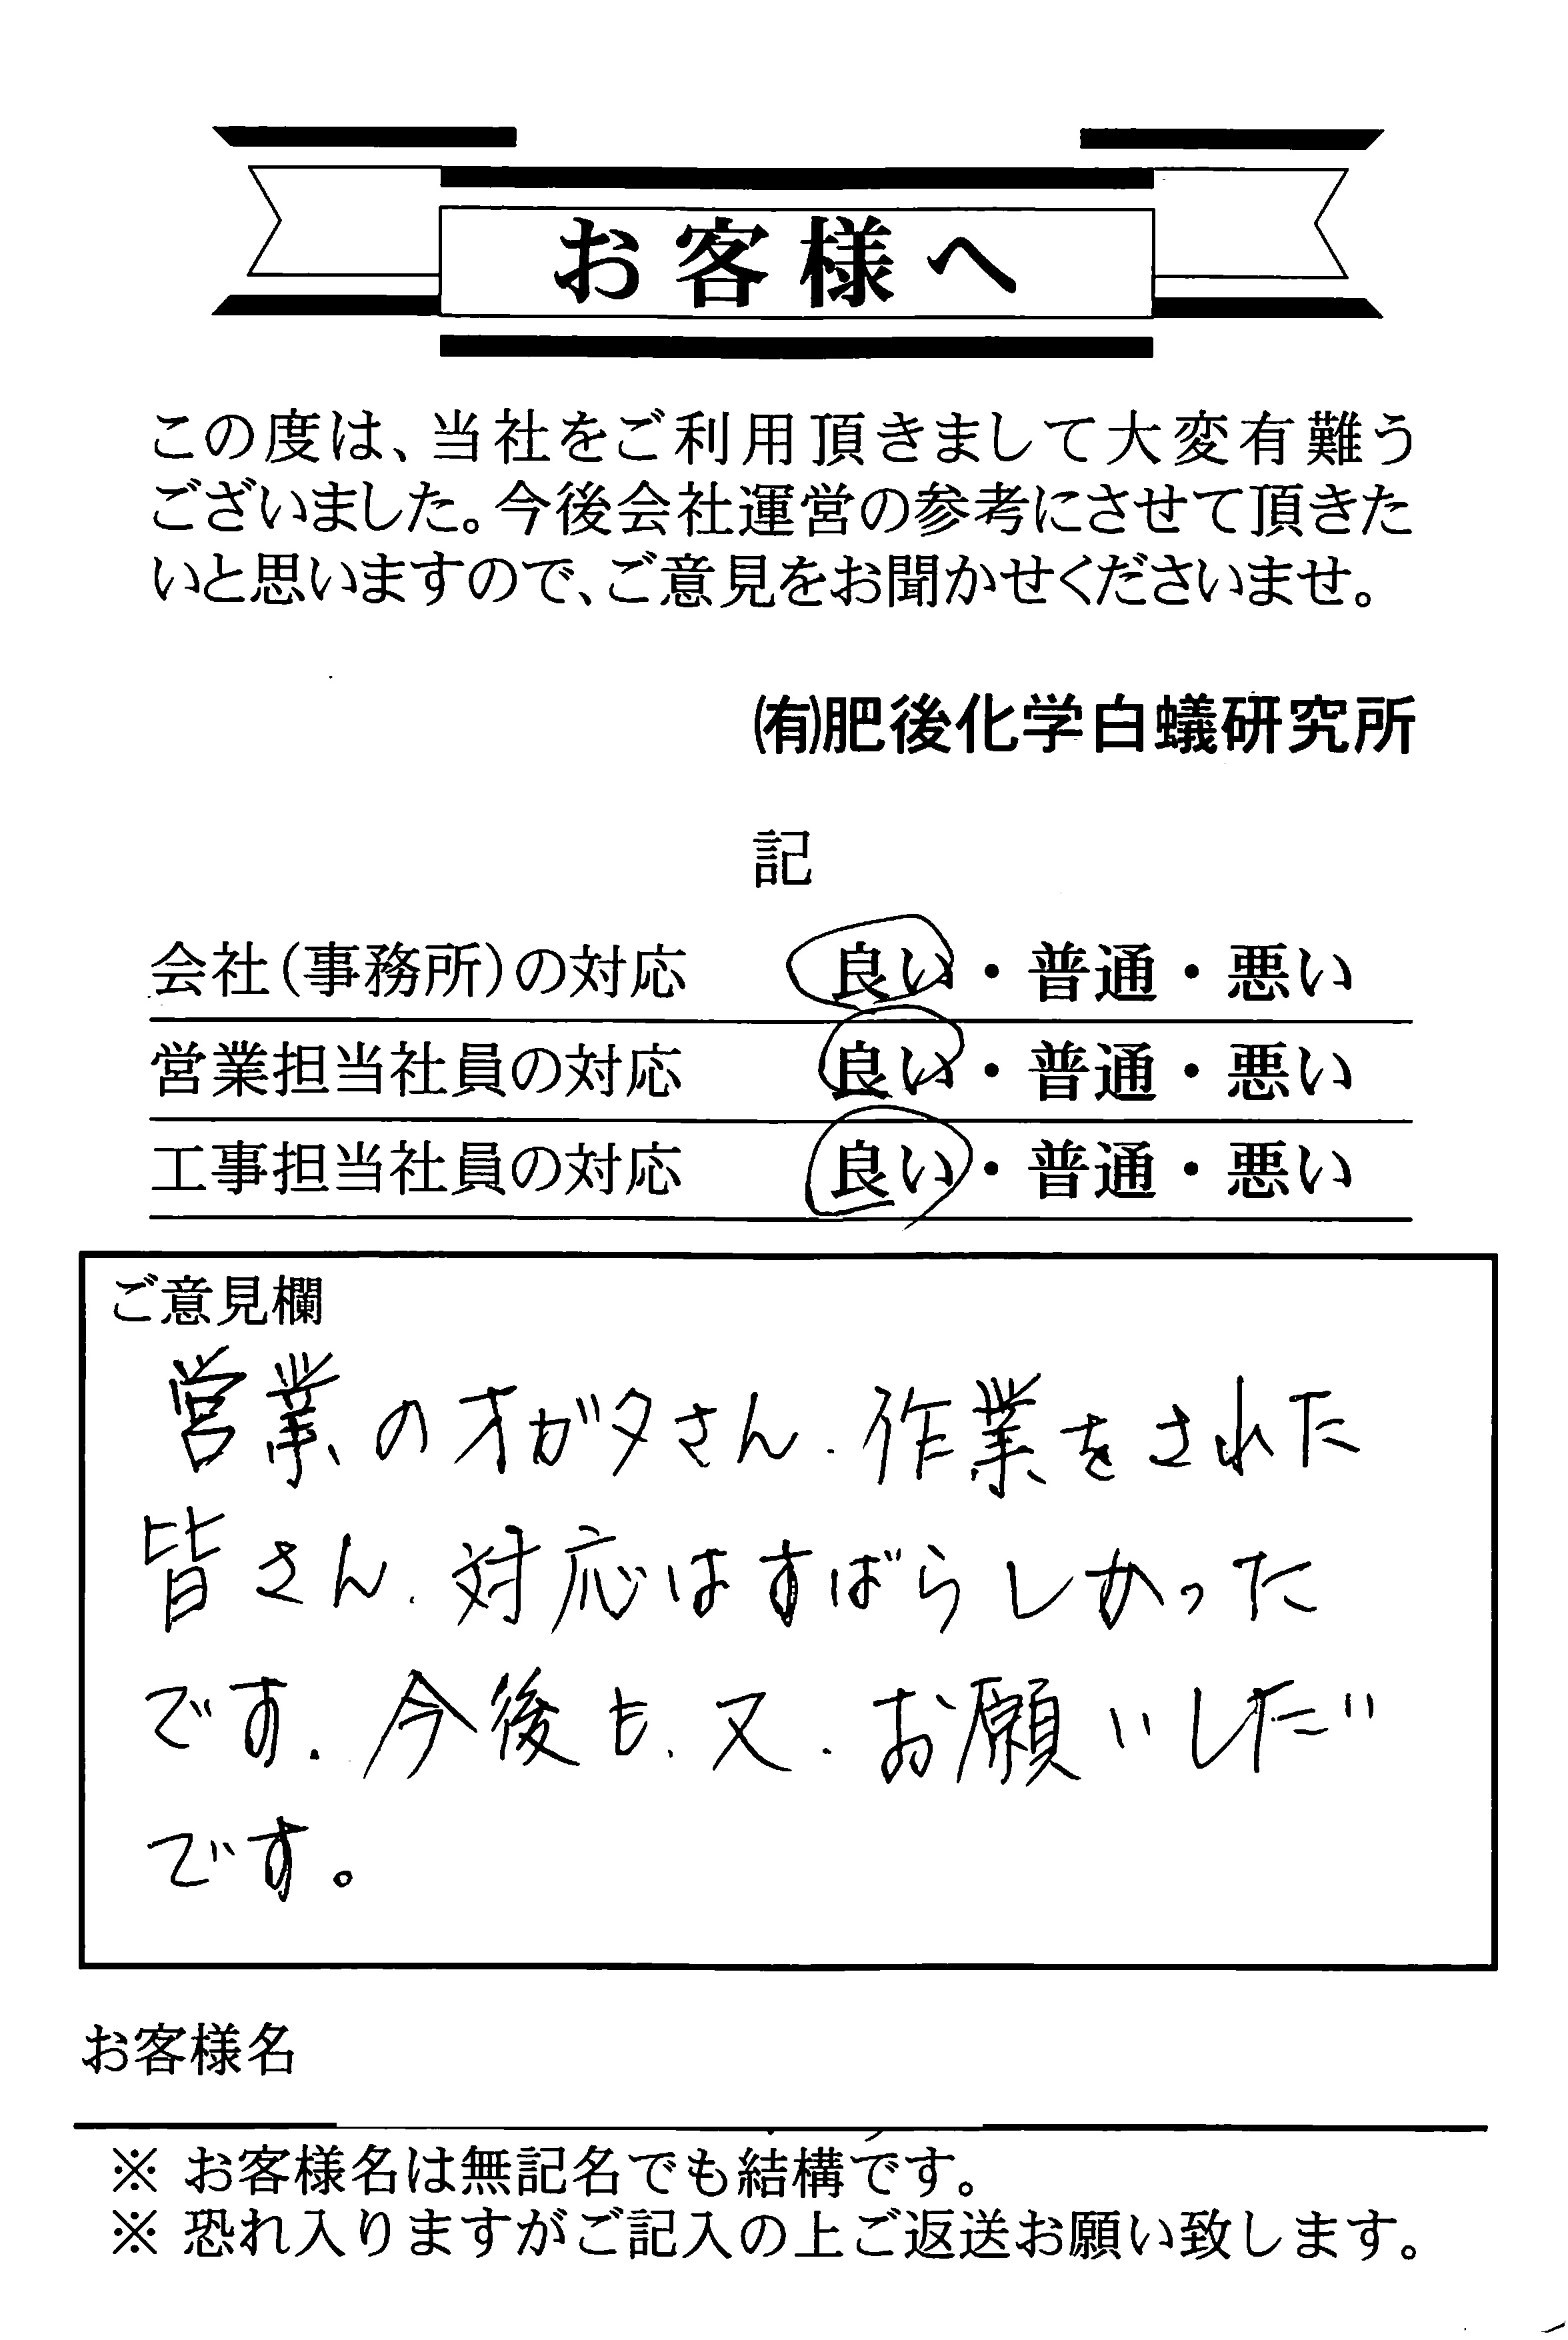 お客様へ
この度は、当社をご利用頂きまして大変有難う
ございました。今後会社運営の参考にさせて頂きた
いと思いますので、ご意見をお聞かせくださいませ。
㈲肥後化学白蟻研究所
記
会社(事務所)の対応 良い・普通・悪い
営業担当社員の対応 良い・普通・悪い
工事担当社員の対応 良い・普通・悪い
ご意見欄
営業のオガタさん、作業をされた
皆さん、対応はすばらしかった
です。今後も、又、お願いしたい
です。
お客様名
※ お客様名は無記名でも結構です。
※ 恐れ入りますがご記入の上ご返送お願い致します。